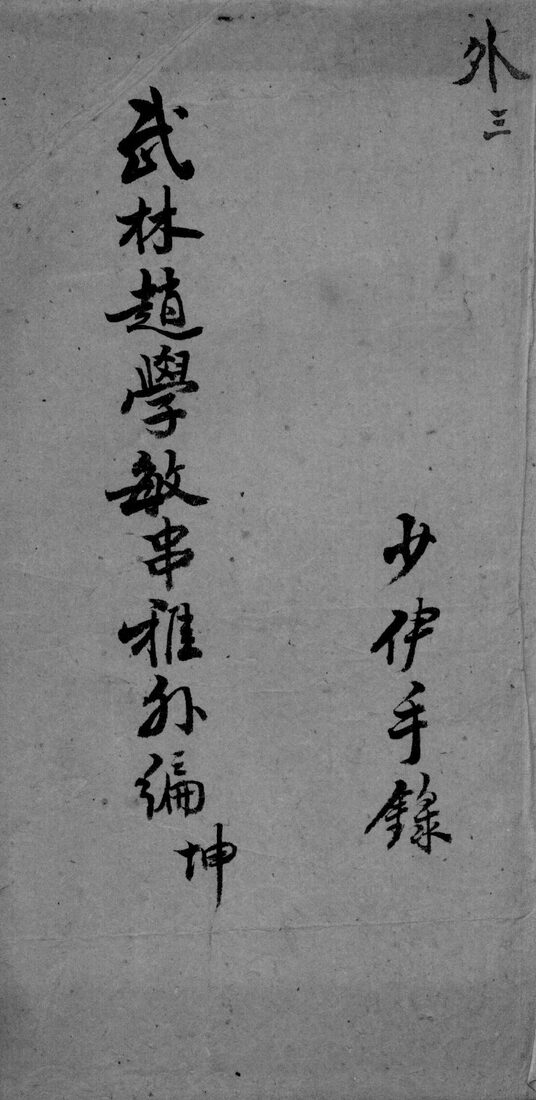 外三
少伊手錄
武林趙學敏串雅外編 坤